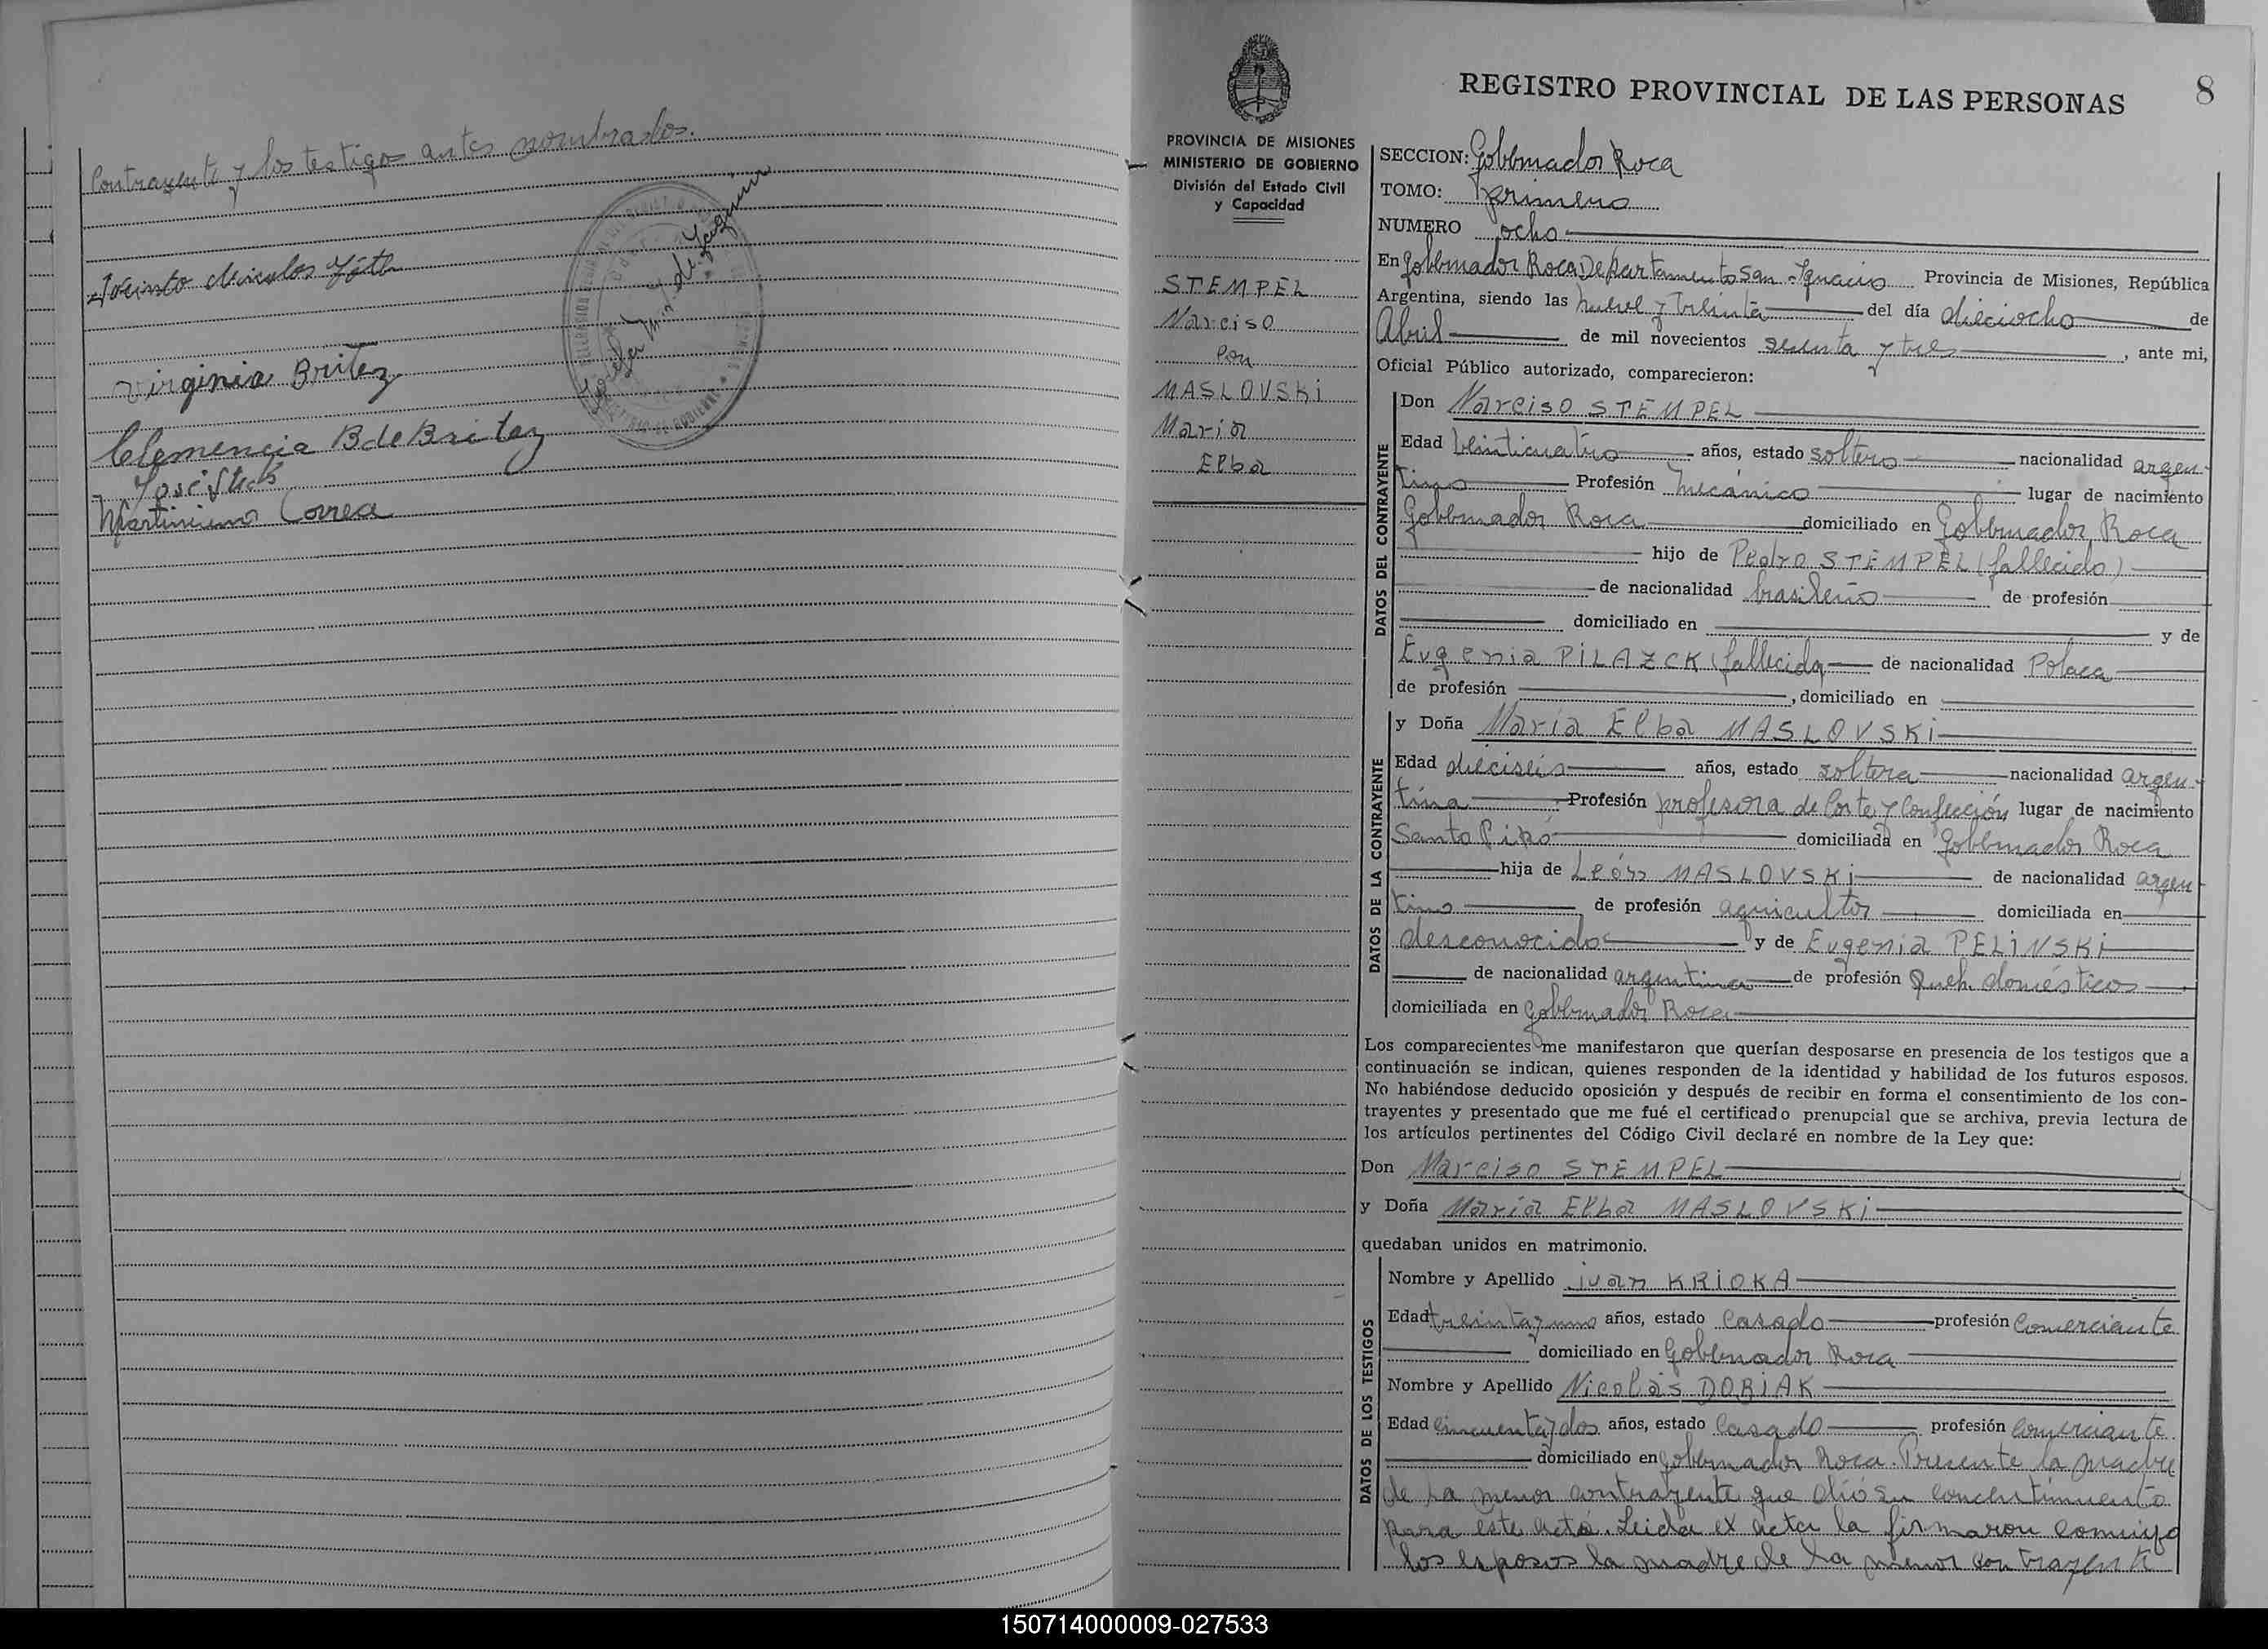 Contrayente y los testigos antes nombrados.
Jacinto
Virginia Britez
Clemencia B de Britez
José
Martiniano Correa
REGISTRO PROVINCIAL DE LAS PERSONAS
8
PROVINCIA DE MISIONES
MINISTERIO DE GOBIERNO
División del Estado Civil
y Capacidad
STEMPEL
Narciso
con
MASLOVSKi
María
Elba
SECCION: Gobernador Roca
TOMO: primero
NUMERO ocho
En Gobernador Roca Departamento San Ignacio Provincia de Misiones, República
Argentina, siendo las nueve y treinta del día dieciocho de
Abril de mil novecientos sesenta y tres, ante mi,
Oficial Público autorizado, comparecieron:
DATOS DEL CONTRAYENTE
Don Narciso STEMPEL
Edad veinticuatro años, estado soltero nacionalidad argen-
tino Profesión mecánico lugar de nacimiento
Gobernador Roca domiciliado en Gobernador Roca
hijo de Pedro STEMPEL (fallecido)
de nacionalidad brasileño de profesión
domiciliado en y de
Eugenia PiLAZCK (fallecida de nacionalidad Polaca
de profesión , domiciliado en
DATOS DE LA CONTRAYENTE
y Doña María Elba MASLOVSKi
Edad dieciseis años, estado soltera nacionalidad argen-
tina Profesión profesora de Corte y Confección lugar de nacimiento
Santo Pipó domiciliada en Gobernador Roca
hija de León MASLOVSKi de nacionalidad argen
tino de profesión agricultor domiciliada en
desconocido y de Eugenia PELiNSKi
de nacionalidad argentina de profesión Queh. domésticos
domiciliada en Gobernador Roca
Los comparecientes me manifestaron que querían desposarse en presencia de los testigos que a
continuación se indican, quienes responden de la identidad y habilidad de los futuros esposos.
No habiéndose deducido oposición y después de recibir en forma el consentimiento de los con-
trayentes y presentado que me fué el certificado prenupcial que se archiva, previa lectura de
los artículos pertinentes del Código Civil declaré en nombre de la Ley que:
Don Narciso STEMPEL
y Doña María Elba MASLOVSKi
quedaban unidos en matrimonio.
DATOS DE LOS TESTIGOS
Nombre y Apellido iván KRiOKA
Edad treinta y uno años, estado Casado profesión Comerciante
domiciliado en Gobernador Roca
Nombre y Apellido Nicolás DOBiAK
Edad cincuenta y dos años, estado Casado profesión Comerciante
domiciliado en Gobernador Roca. Presente la madre
de la menor contrayente que dió su concentimiento
para este acto. Leida el acta la firmaron conmigo
los esposos la madre de la menor contrayente
150714000009-027533